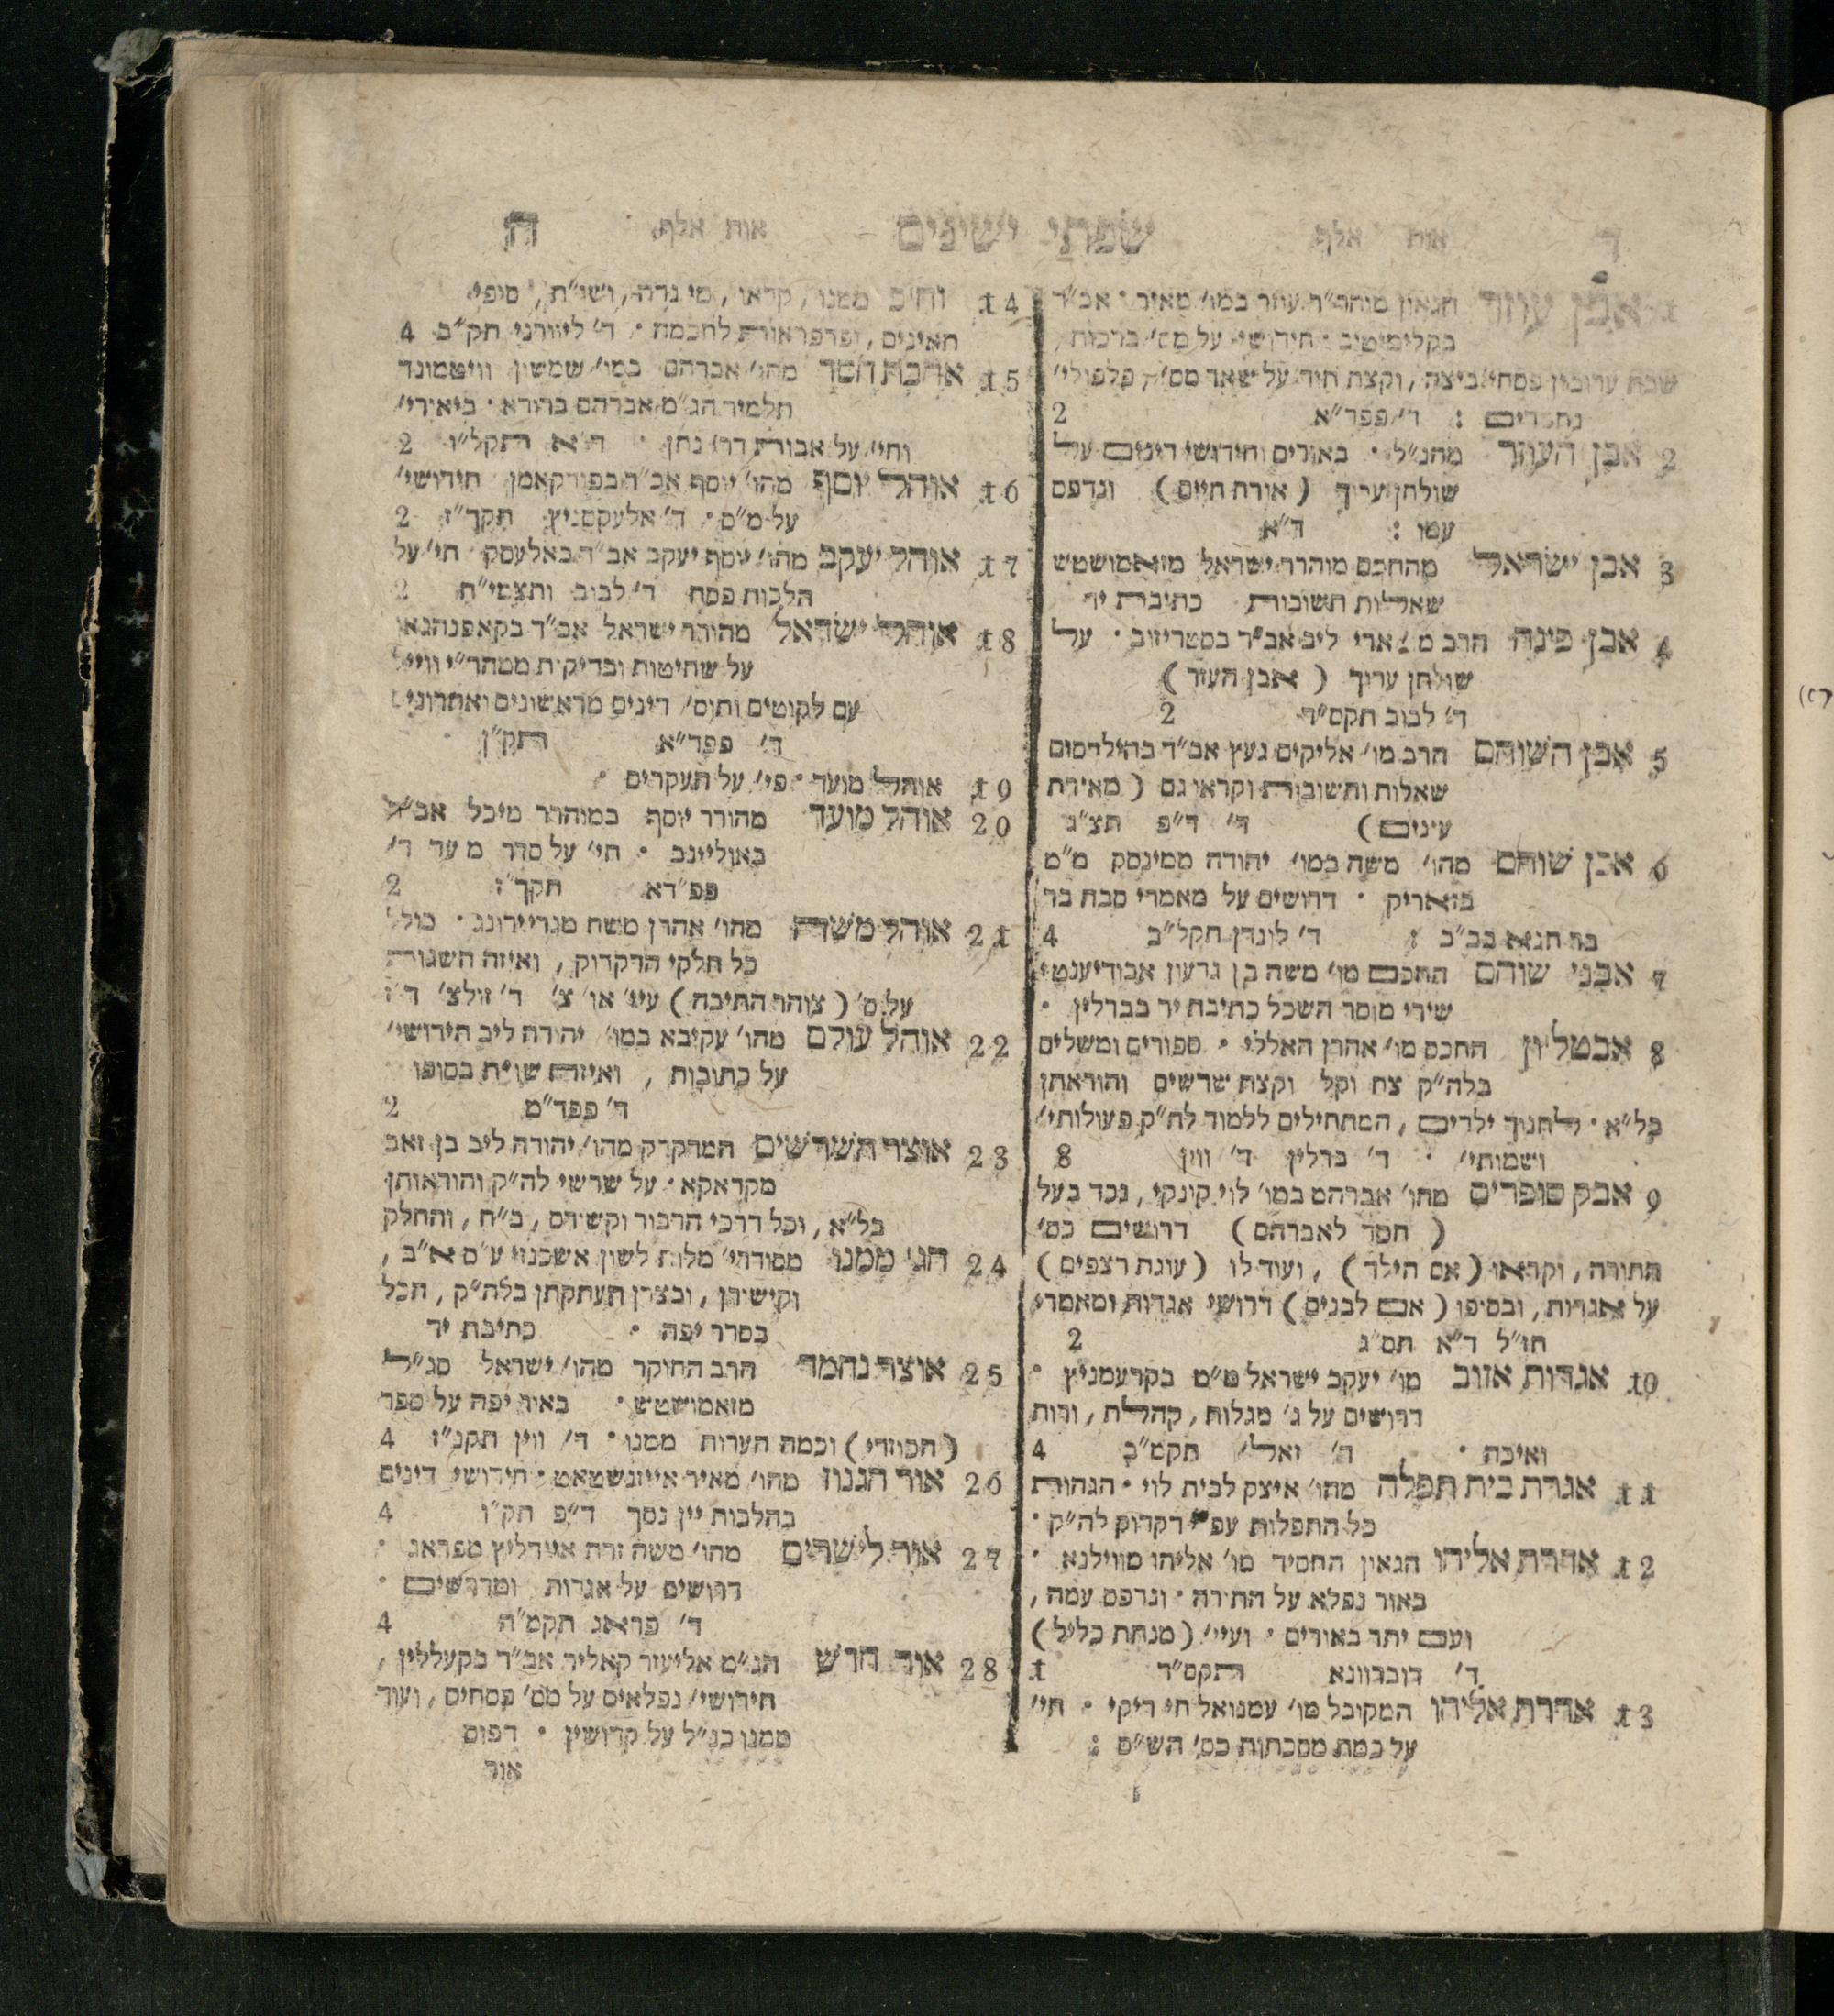 ד אות אלף שפתי ישינים אות אלף ה
1 אבן עוזר הגאון מוהר״ר עוזר במו׳ מאיר אב״ד
בקלימטיב חידושי׳ על מס׳ ברכות,
שבת ערובין פסחי׳ ביצה, וקצת חיד׳ על שאר מס׳, פלפולי׳
נחמדים : ד׳ פפר״א 2
2 אבן העוזר מהנ״ל באורים וחידושי דינים על
שולחן ערוך (אורח חיים) ונדפס
עמו : ד״א
3 אבן ישראל מהחכם מוהרר ישראל מזאמושטש
שאלות תשובות כתיבת יד
4 אבן פינה הרב מ׳ ארי ליב אב״ד בסטריזוב על
שולחן ערוך (אבן העזר)
ד׳ לבוב תקס״ד 2
5 אבן השוהם הרב מו׳ אליקים געץ אב״ד בהילדסום
שאלות ותשובות וקראו גם (מאירת
עינים) ד׳ ד״פ תצ״ג
6 אבן שוהם מהו׳ משה במו׳ יהודה ממינסק מ״מ
בזאריק דרושים על מאמרי סבח בר
בר חנא בב״ב : ד׳ לונדן תקל״ב 4
7 אבני שוהם החכם מו׳ משה בן גדעון אבודיענטי
שירי מוסר השכל כתיבת יד בברלין
8 אבטליון החכם מו׳ אהרן האללי ספורים ומשלים
בלה״ק צח וקל וקצת שרשים והוראתן
בל״א לחנוך ילדים, המתחילים ללמוד לה״ק פעולותי׳
ושמותי׳ ד׳ ברלין ד׳ ווין 8
9 אבק סופרים מהו׳ אברהם במו׳ לוי קונקי, נכד בעל
(חסד לאברהם) דרושים בס׳
התורה, וקראו (אם הילד), ועוד לו (עוגת רצפים)
על אגדות, ובסיפו (אם לבנים) דרושי אגדות ומאמרי
חז״ל ד״א תס״ג 2
10 אגדות אזוב מו׳ יעקב ישראל מ״מ בקרעמניץ
דרושים על ג׳ מגלות, קהלת, ורות
ואיכה ד׳ זאל׳ תקמ״ב 4
11 אגרת בית תפלה מהו׳ איצק לבית לוי הגהות
כל התפלות עפ״י דקדוק לה״ק
12 אדרת אליהו הגאון החסיד מו׳ אליהו מווילנא
באור נפלא על התורה ונדפס עמה,
ועם יתר באורים ועיי׳ (מנחת כליל)
ד׳ דובראוונא תקס״ד 1
13 אדרת אליהו המקובל מו׳ עמנואל חי ריקי חי׳
על כמה מסכתות בס׳ הש״ס :
14 וחיב ממנו, קראו, מי נדה, ושו״ת, סופי
תאינים, ופרפראות לחכמה ד׳ ליוורני תק״ב 4
15 אהבת חסד מהו׳ אברהם במו׳ שמשון וויטמונד
תלמיד הג״מ אברהם ברודא ביאורי׳
וחי׳ על אבות דר׳ נתן ד״א תקל״ו 2
16 אוהל יוסף מהו׳ יוסף אב״ד בפודקאמן חידושי׳
על מ״ס ד׳ אלעקסניץ תקך״ז 2
17 אוהל יעקב מהו׳ יוסף יעקב אב״ד באלעסק חי׳ על
הלכות פסח ד׳ לבוב ותצמי״ח 2
18 אוהל ישראל מהורר ישראל אב״ד בקאפנהגאן
על שחיטות ובדיקות ממהר״י ווייל
עם לקוטים ותוס׳ דינים מראשונים ואחרונים
ד׳ פפר״א תק״ן
19 אוהל מועד פי׳ על העקרים
20 אוהל מועד מהורר יוסף במוהרר מיכל אב״ד
באוליינב חי׳ על סדר מועד ד׳
פפ״דא תקך״ז 2
21 אוהל משה מהו׳ אהרן משה מגריידונג כולל
כל חלקי הדקדוק, ואיזה השגות
על ס׳ (צוהר התיבה) עיי׳ או׳ צ׳ ד׳ זולצ׳
22 אוהל עולם מהו׳ עקיבא במו׳ יהודה ליב חידושי׳
על כתובות, ואיזה שו״ת בסופו
ד׳ פפד״מ 2
23 אוצר השרשים המדקדק מהו׳ יהודה ליב בן זאב
מקראקא על שרשי לה״ק והוראותן
בל״א, וכל דרכי הדבור וקשידם, ב״ח, והחלק
24 הגי ממנו מסודרי׳ מלות לשון אשכנזי ע״ס א״ב,
וקישורן, ובצדן העתקתן בלה״ק, הכל
בסדר יפה כתיבת יד
25 אוצר נחמד הרב החוקר מהו׳ ישראל סג״ל
מזאמושטש באור יפה על ספר
(הכוזרי) וכמה הערות ממנו ד׳ ווין תקנ״ז 4
26 אור הגנוז מהו׳ מאיר אייזנשטאט חידושי דינים
בהלכות יין נסך ד״פ תק״ו 4
27 אור לישרים מהו׳ משה זרח אידליץ מפראג
דרושים על אגדות ומדרשים
ד׳ פראג תקמ״ה 4
28 אור חדש הג״מ אליעזר קאליר אב״ד בקעללין,
חידושי׳ נפלאים על מס׳ פסחים, ועוד
ממנו כנ״ל על קדושין דפוס
אור